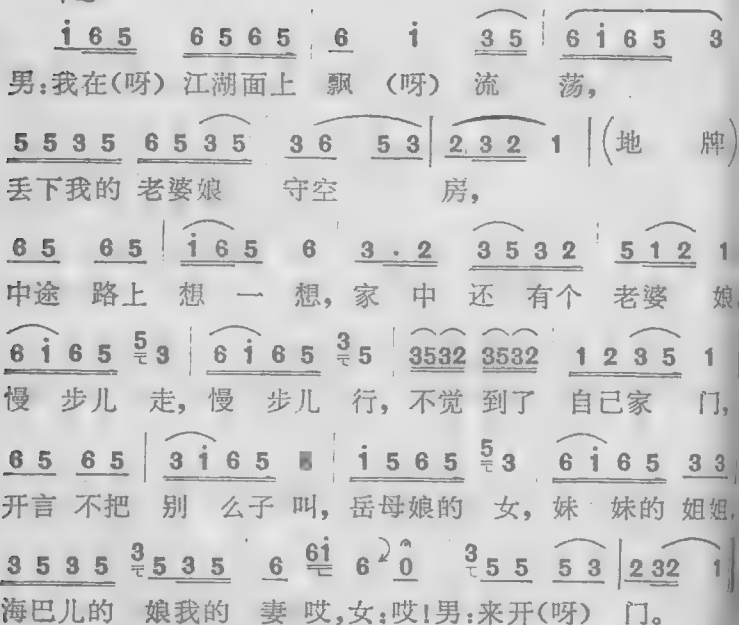 i 6 5 6 5 6 5 6 i 3 5 6 i 6 5 3
男:我在(呀) 江湖面上 飘 (呀) 流 荡,
5 5 3 5 6 5 3 5 3 6 5 3 2 3 2 1 (地 牌)
丢下我的 老婆娘 守空 房,
6 5 6 5 i 6 5 6 3 . 2 3 5 3 2 5 1 2 1
中途 路上 想 一 想, 家 中 还 有个 老婆 娘,
6 i 6 5 5 3 6 i 6 5 3 5 3532 3532 1 2 3 5 1
慢 步儿 走, 慢 步儿 行, 不觉 到了 自己家 门,
6 5 6 5 3 i 6 5 i 5 6 5 5 3 6 i 6 5 3 3
开言 不把 别 么子 叫, 岳母娘的 女, 妹 妹的 姐姐,
3 5 3 5 3 5 3 5 6 6i 6 0 3 5 5 5 3 2 32 1
海巴儿的 娘我的 妻 哎,女:哎!男:来开(呀) 门。